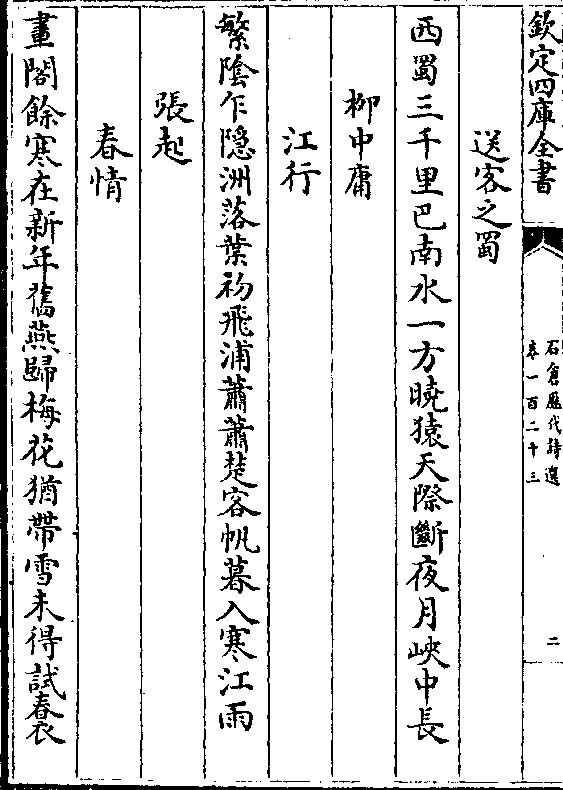 欽定四庫全書
石倉歷代詩選
卷一百二十三
二
送客之蜀
西蜀三千里巴南水一方曉猿天際斷夜月峽中長
柳中庸
江行
繁陰乍隱洲落葉初飛浦蕭蕭楚客帆暮入寒江雨
張起
春情
畫閣餘寒在新年舊燕歸梅花猶帶雪未得試春衣